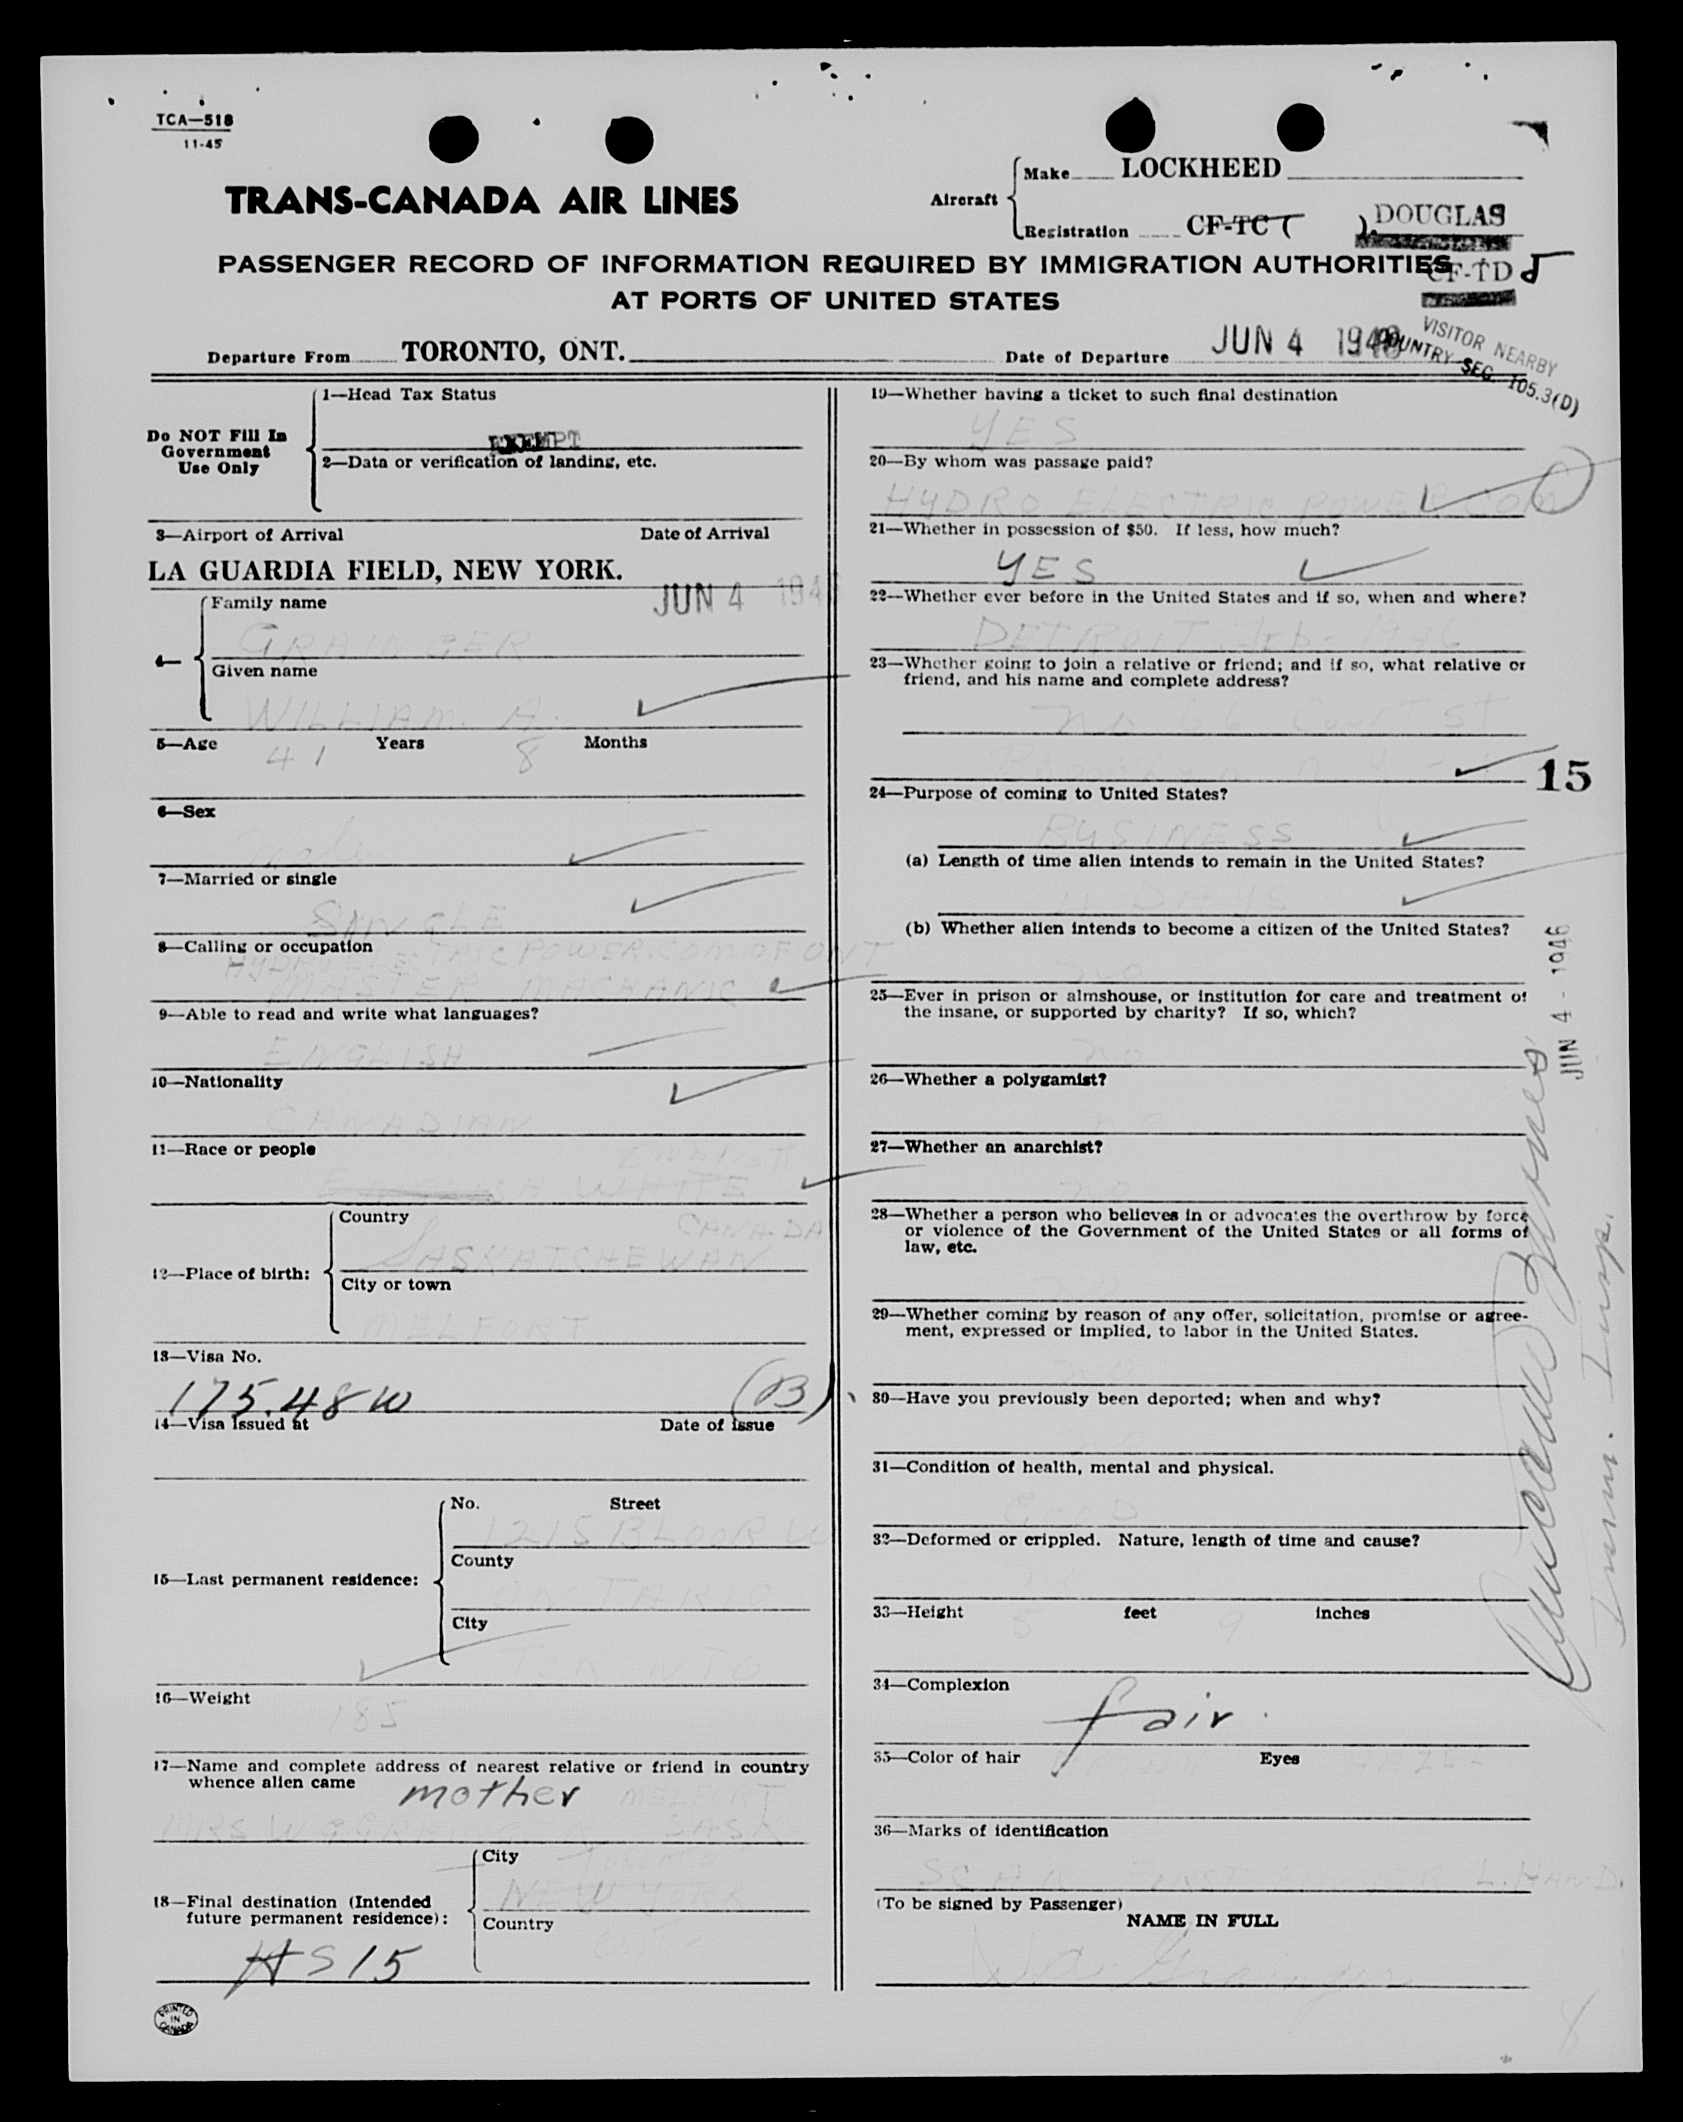 TCA—518
11-45
TRANS-CANADA AIR LINES
Aircraft
Make LOCKHEED
Registration CF-TC
DOUGLAS
CF-TD J
PASSENGER RECORD OF INFORMATION REQUIRED BY IMMIGRATION AUTHORITIES
AT PORTS OF UNITED STATES
VISITOR NEARBY
COUNTRY SEC. 105.3(D)
Departure From TORONTO, ONT.
Date of Departure JUN 4 1946
Do NOT Fill In
Government
Use Only
1—Head Tax Status
EXEMPT
2—Data or verification of landing, etc.
3—Airport of Arrival Date of Arrival
LA GUARDIA FIELD, NEW YORK.
JUN 4 194
4—
Family name
GRAINGER
Given name
WILLIAM. A.
5—Age 41 Years 8 Months
6—Sex
male
7—Married or single
SINGLE
8—Calling or occupation
HYDRO ELECTRIC POWER. COM OF ONT
MASTER MACHANIC
9—Able to read and write what languages?
ENGLISH
10—Nationality
CANADIAN
11—Race or people
ENGLISH
WHITE
12—Place of birth:
Country
CANADA
SASKATCHEWAN
City or town
MELFORT
13—Visa No.
175.48W (B)
14—Visa Issued at Date of Issue
15—Last permanent residence:
No. Street
1215 BLOOR W
County
ONTARIO
City
TORONTO
16—Weight
185
17—Name and complete address of nearest relative or friend in country
whence alien came
mother MELFORT
MRS W SASK
18—Final destination (Intended
future permanent residence):
City
TORONTO
NEW YORK
Country
HS 15
PRINTED
IN
CANADA
19—Whether having a ticket to such final destination
YES
20—By whom was passage paid?
HYDRO ELECTRIC POWER COM
21—Whether in possession of $50. If less, how much?
YES
22—Whether ever before in the United States and if so, when and where?
DETROIT Feb- 1946
23—Whether going to join a relative or friend; and if so, what relative or
friend, and his name and complete address?
No 66 Court St
N Y
15
24—Purpose of coming to United States?
BUSINESS
(a) Length of time alien intends to remain in the United States?
DAYS
(b) Whether alien intends to become a citizen of the United States?
no
25—Ever in prison or almshouse, or institution for care and treatment of
the insane, or supported by charity? If so, which?
no
26—Whether a polygamist?
no
27—Whether an anarchist?
no
28—Whether a person who believes in or advocates the overthrow by force
or violence of the Government of the United States or all forms of
law, etc.
29—Whether coming by reason of any offer, solicitation, promise or agree-
ment, expressed or implied, to labor in the United States.
30—Have you previously been deported; when and why?
31—Condition of health, mental and physical.
GOOD
32—Deformed or crippled. Nature, length of time and cause?
33—Height 5 feet 9 inches
34—Complexion
fair.
35—Color of hair Eyes
36—Marks of identification
SCAR FIRST FINGER L. HAND.
(To be signed by Passenger)
NAME IN FULL
W.A. Grainger
JUN 4 - 1946
Imm. Insp.